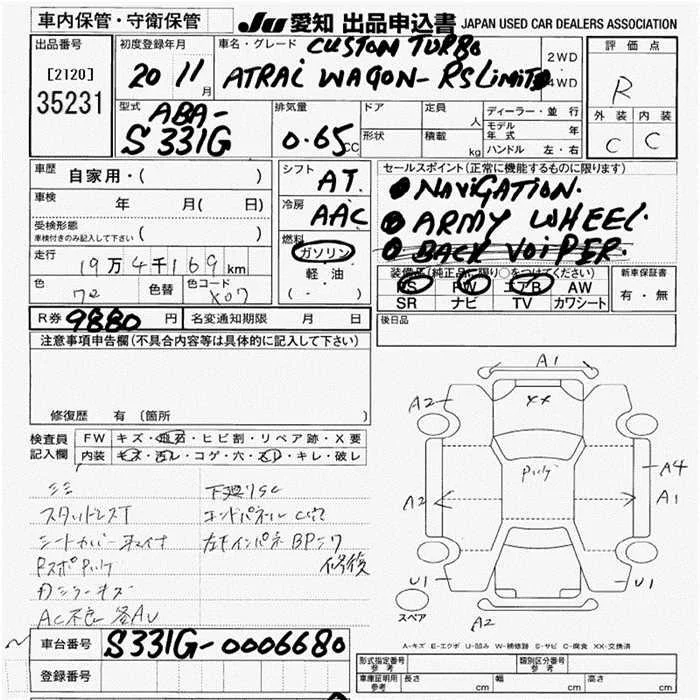 車内保管・守衛保管
JU 愛知 出品申込書 JAPAN USED CAR DEALERS ASSOCIATION
出品番号
[2120]
35231
初度登録年月
20 11月
車名・グレード
CUSTOM TURBO
ATRAi WAGON- RS LIMITED
2WD
4WD
評価点
R
外装 内装
C C
型式
ABA-
S331G
排気量
0.65CC
ドア
形状
定員 人
積載 kg
ディーラー・並行
モデル年式 年
ハンドル 左・右
車歴
自家用・( )
車検 年 月( 日)
受検形態
(車検付きのみ記入して下さい)
走行
19万4千169km
色 色替 色コード
X07
R券 9880 円
名変通知期限 月 日
シフト
AT
冷房
AAC
燃料
ガソリン
軽・油
( - )
セールスポイント(正常に機能するものに限ります)
NAViGATiON.
ARMY WHEEL.
BACK VOiPER.
装備品(純正品に限り○をつけてください)
PS PW エアB AW
SR ナビ TV カワシート
新車保証書
有・無
後日品
注意事項申告欄(不具合内容等は具体的に記入して下さい)
修復歴 有 (箇所 )
検査員
記入欄
FW キズ・飛石・ヒビ割・リペア跡・X要
内装 キズ・汚レ・コゲ・穴・スレ・キレ・破レ
下廻りSC
スタッドレスT
エンドパネル
シートカバー取付
左右インパネBP
修復
キズ
AC不良
A1
A2
XX
A4
A2
A1
U1
U1
A2
スペア
A-キズ E-エクボ U-凹み W-補修跡 S-サビ C-腐食 XX-交換済
車台番号 S331G-0006680
登録番号
形式指定番号 参考
類別区分番号 参考
車庫証明用 参考
長さ cm 幅 cm 高さ cm